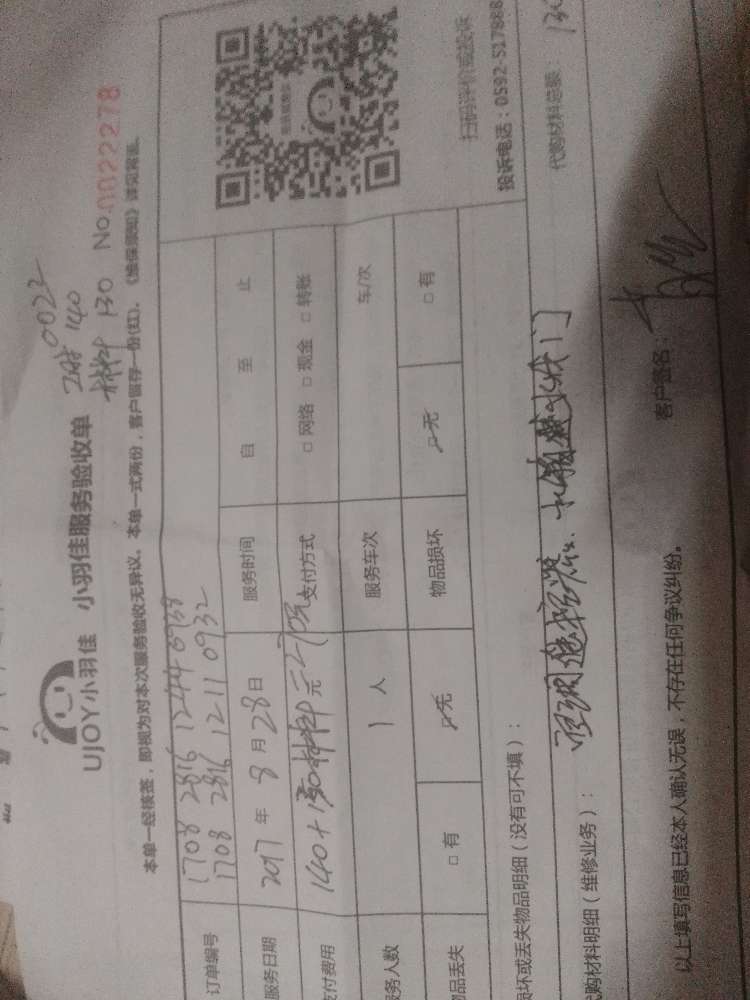 UJOY小羽佳 小羽佳服务验收单
0023
工时 140
材料 130
No.0022278
本单一经核签，即视为对本次服务验收无异议。本单一式两份，客户留存一份(红)。《维保须知》详见背面。
订单编号 1708 2816 1244 0939
1708 2816 1211 0932
服务日期 2017 年 8 月 28 日 服务时间 自 至 止
支付费用 140+130材料 元 支付方式 □ 网络 □ 现金 □ 转账
服务人数 1 人 服务车次 车/次
物品丢失 □ 有 ☑ 无 物品损坏 ☑ 无 □ 有
扫码评价或投诉
投诉电话：0592-517888
损坏或丢失物品明细（没有可不填）：
代购材料明细（维修业务）： 代购材料总费： 130
客户签名：
以上填写信息已经本人确认无误，不存在任何争议纠纷。